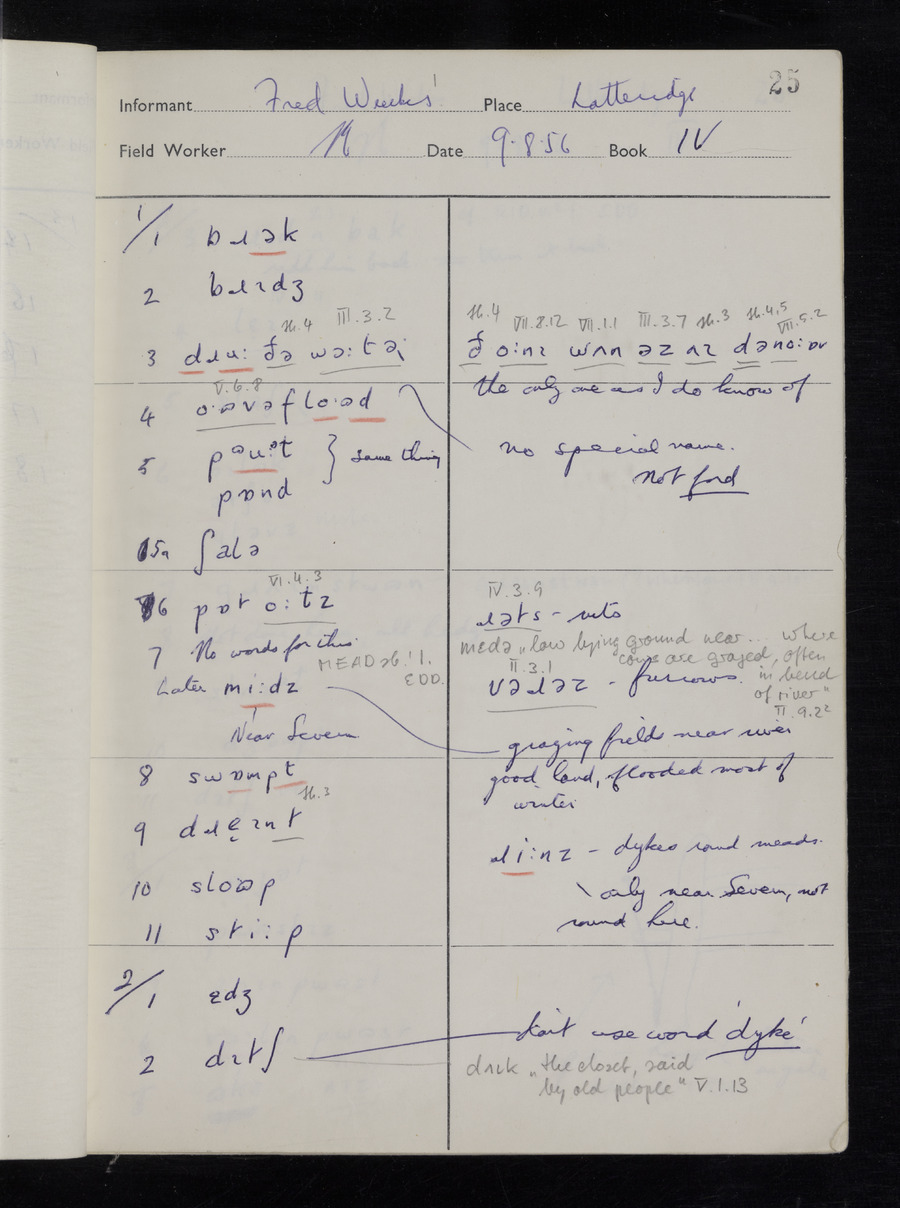 25
Informant Fred Weeks Place Latteridge
Field Worker Date 9.8.56 Book IV
1/1 bɹək
2 bɹɪdʒ
Ѕt.4 III.3.2
3 dɹuː ðə wɔːtəɹ
V.6.8
4 flɔəd
5 same thing
pɒnd
5a ʃalə
VI.4.3
6
7 No words for this.
MEAD sb.' 1.
EDD.
Later miːdz
Near Severn
8 swɒmpt
9
10 slɔəp
11 stiːp
2/1 ɛdʒ
2 dɪtʃ
VII.8.12 VII.1.1 III.3.7 VII.5.2
the only one as I do know of
no special name.
not ford
IV.3.9
ɹəts - ruts
medə „low lying ground near... where
cows are grazed, often
in bend
of river"
II.3.1
vəɹəz - furrows.
II.9.22
grazing fields near river
good land, flooded most of
winter
ɹiːnz - dykes round meads.
only near Severn, not
round here.
don't use word 'dyke'
dʌɪk „the closet, said
by old people" V.1.13